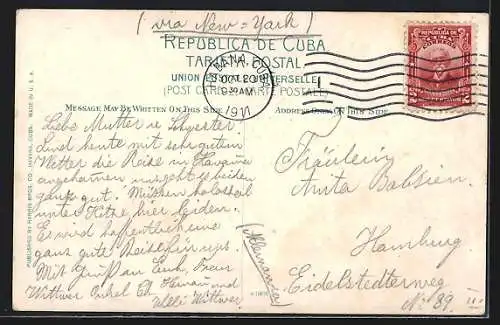 (via New-York)
REPÚBLICA DE CUBA
TARJETA POSTAL
UNION POSTALE UNIVERSELLE
(POST CARD - CARTE POSTALE)
HABANA, CUBA
OCT 23
9 AM
1911
REPUBLICA DE
CUBA
CORREOS
2
MESSAGE MAY BE WRITTEN ON THIS SIDE
ADDRESS ONLY ON THIS SIDE
Liebe Mutter u Schwester
Sind heute mit sehr gutem
Wetter die Reise in Havanna
angekommen und geht es beiden
ganz gut. Müssen kolossal
unter Hitze hier leiden.
Es wird hoffentlich eine
ganz gute Reise
Mit Gruß an Euch,
Wittwer Onkel Ed, Herman und
Willi Wittwer
Fräulein
Anita
Hamburg
Eidelstedterweg
No 89. III
(Allemania)
PUBLISHED BY HARRIS BROS. CO., HAVANA, CUBA. MADE IN U. S. A.